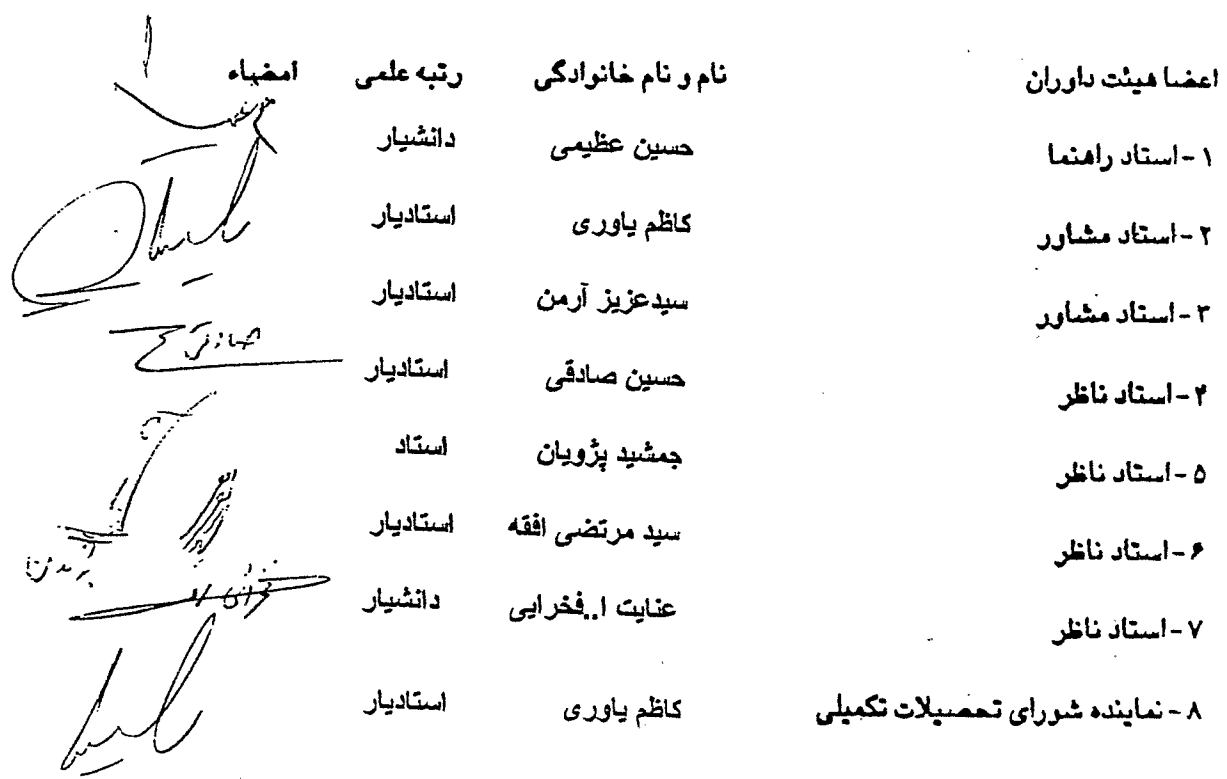 اعضا هیئت داوران نام و نام خانوادگی رتبه علمی امضاء
۱-استاد راهنما حسین عظیمی دانشیار
۲-استاد مشاور کاظم یاوری استادیار
۳-استاد مشاور سیدعزیز آرمن استادیار
۴-استاد ناظر حسین صادقی استادیار
۵-استاد ناظر جمشید پژویان استاد
۶-استاد ناظر سید مرتضی افقه استادیار
۷-استاد ناظر عنایت ا..فخرایی دانشیار
۸-نماینده شورای تحصیلات تکمیلی کاظم یاوری استادیار